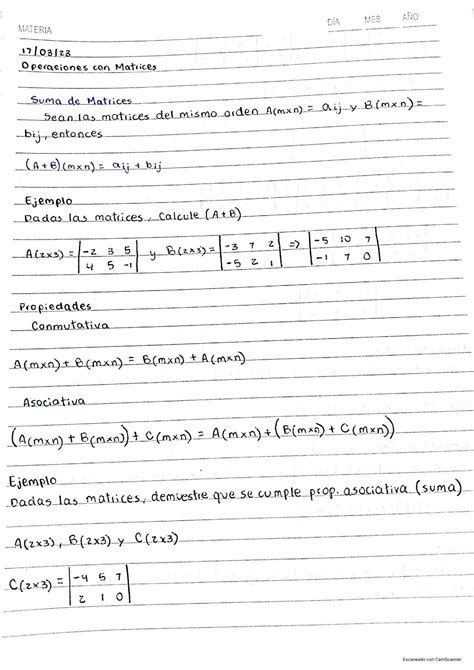 MATERIA DÍA MES AÑO
17/03/23
Operaciones con Matrices
Suma de Matrices
Sean las matrices del mismo orden A(mxn) = aij y B(mxn) =
bij, entonces
(A+B)(mxn) = aij + bij
Ejemplo
Dadas las matrices, Calcule (A+B)
A(2x3) = |-2 3 5| y B(2x3) = |-3 7 2| => |-5 10 7|
|4 5 -1| |-5 2 1| |-1 7 0|
Propiedades
Conmutativa
A(mxn) + B(mxn) = B(mxn) + A(mxn)
Asociativa
(A(mxn) + B(mxn)) + C(mxn) = A(mxn) + (B(mxn) + C(mxn))
Ejemplo
Dadas las matrices, demuestre que se cumple prop. asociativa (suma)
A(2x3), B(2x3) y C(2x3)
C(2x3) = |-4 5 7|
|2 1 0|
Escaneado con CamScanner